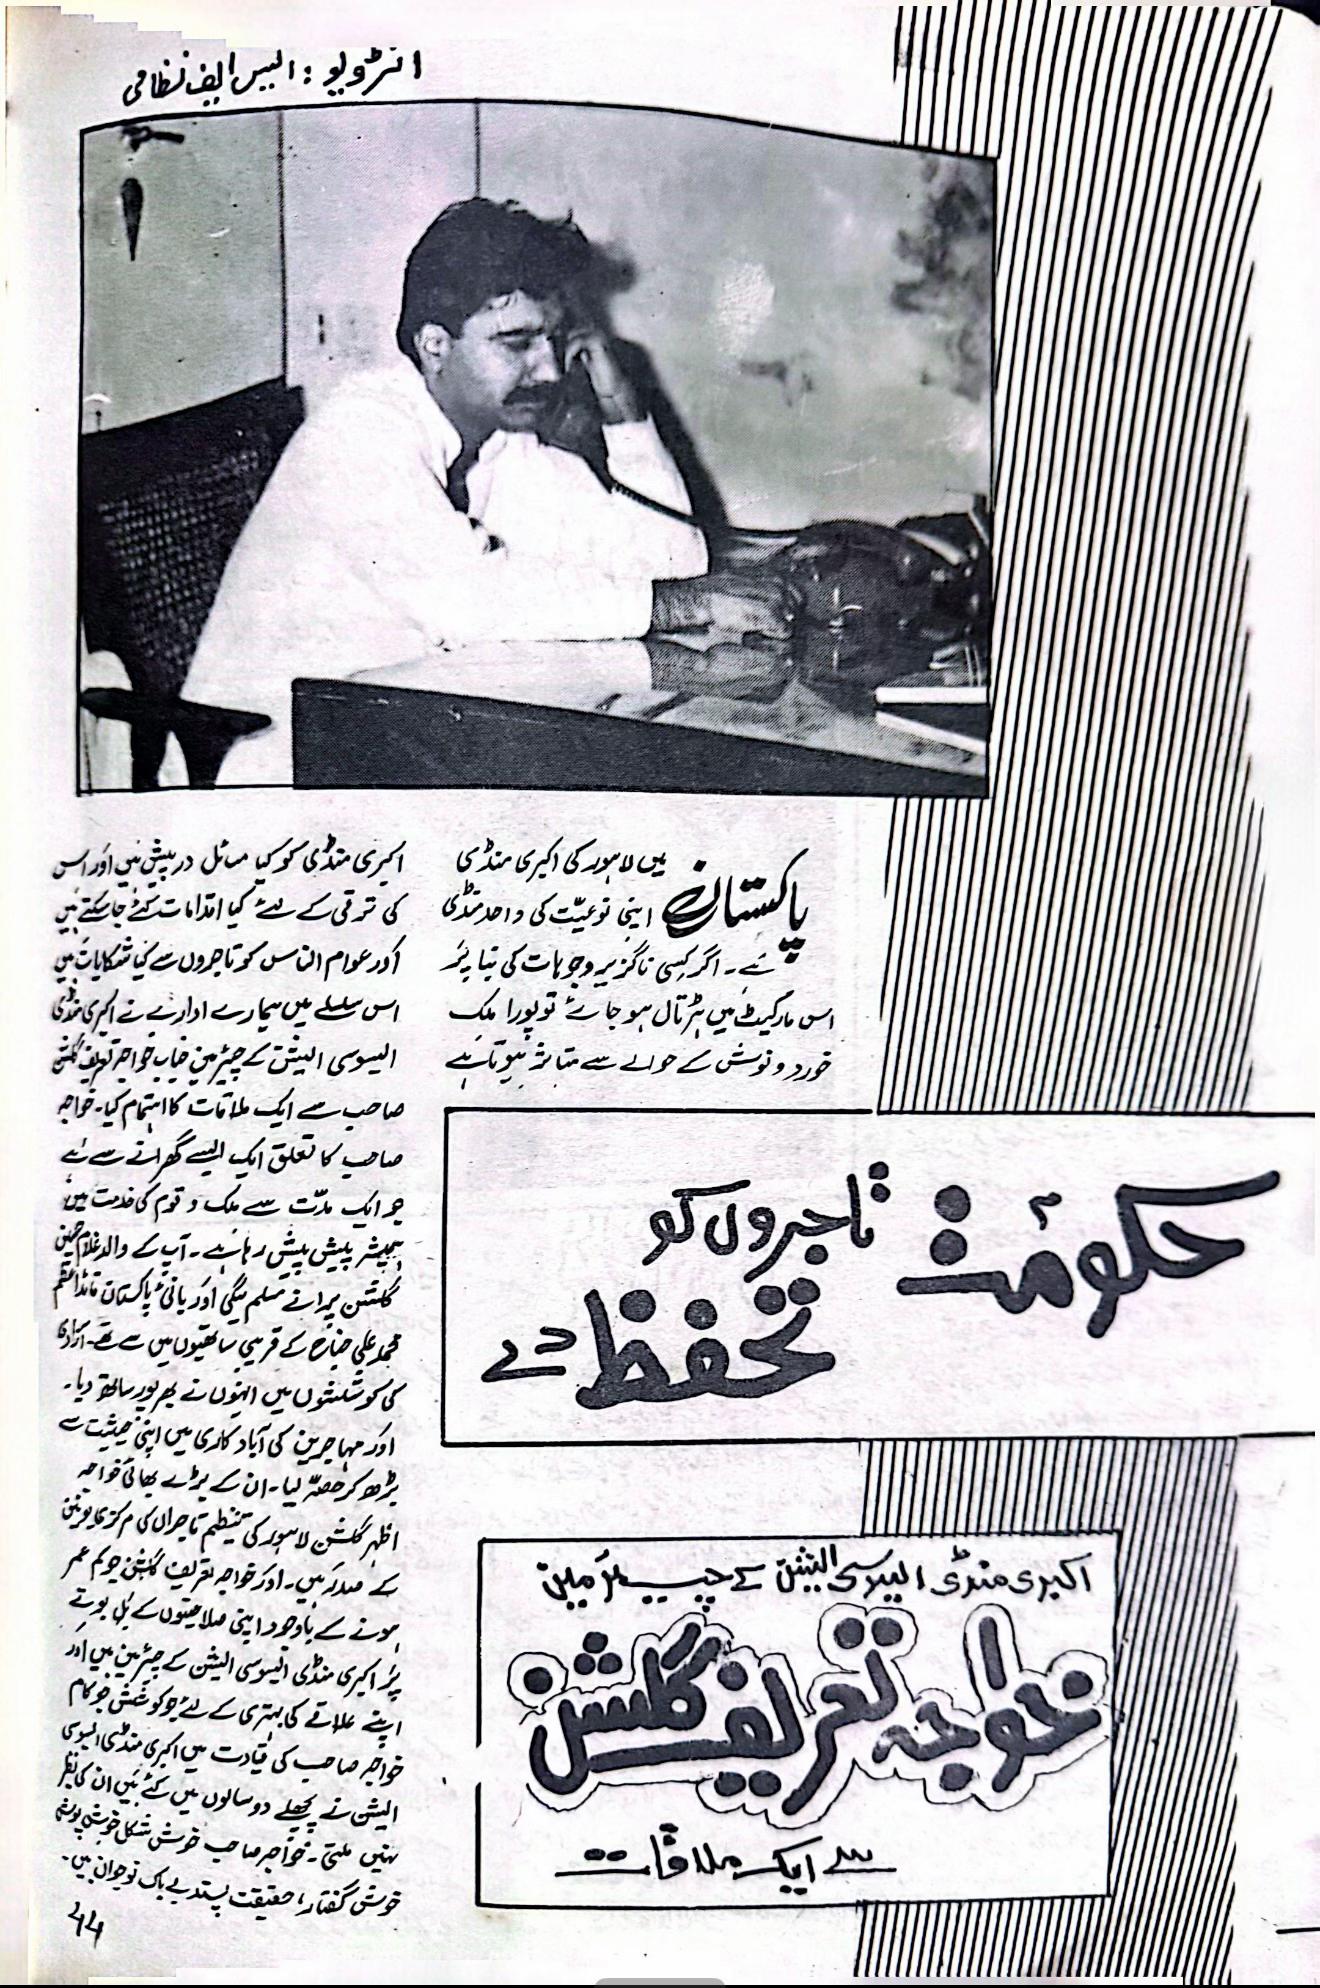 انٹرویو : ایس ایف نظامی
پاکستان میں لاہور کی اکبری منڈی
اپنی نوعیّت کی واحد منڈی
ہے۔ اگر کسی ناگزیر وجوہات کی بنا پر
اس مارکیٹ میں ہڑتال ہو جائے تو پورا ملک
خورد و نوش کے حوالے سے متاثر ہوتا ہے
حکومت تاجروں کو
تحفظ دے
اکبری منڈی ایسوسی ایشن کے چیئرمین
خواجہ تعریف گلشن
سے ایک ملاقات
اکبری منڈی کو کیا مسائل درپیش ہیں اور اس
کی ترقی کے لئے کیا اقدامات کئے جا سکتے ہیں
اور عوام الناس کو تاجروں سے کیا شکایات ہیں
اس سلسلے میں ہمارے ادارے نے اکبری منڈی
ایسوسی ایشن کے چیئرمین جناب خواجہ تعریف گلشن
صاحب سے ایک ملاقات کا اہتمام کیا۔ خواجہ
صاحب کا تعلق ایک ایسے گھرانے سے ہے
جو ایک مدّت سے ملک و قوم کی خدمت میں
ہمیشہ پیش پیش رہا ہے۔ آپ کے والد غلام حسین
گلشن پرانے مسلم لیگی اور بانیٔ پاکستان قائداعظم
محمد علی جناح کے قریبی ساتھیوں میں سے تھے۔ آزادی
کی کوششوں میں انہوں نے بھرپور ساتھ دیا۔
اور مہاجرین کی آباد کاری میں اپنی حیثیت سے
بڑھ کر حصّہ لیا۔ ان کے بڑے بھائی خواجہ
اظہر گلشن لاہور کی تنظیم تاجراں کی مرکزی یونین
کے صدر ہیں۔ اور خواجہ تعریف گلشن جو کم عمر
ہونے کے باوجود اپنی صلاحیتوں کے بل بوتے
پر اکبری منڈی ایسوسی ایشن کے چیئرمین ہیں اور
اپنے علاقے کی بہتری کے لئے جو کوشش جو کام
خواجہ صاحب کی قیادت میں اکبری منڈی ایسوسی
ایشن نے پچھلے دو سالوں میں کئے ہیں ان کی نظر
نہیں ملتی۔ خواجہ صاحب خوش شکل خوش پوش
خوش گفتار، حقیقت پسند بے باک نوجوان ہیں۔
۶۶